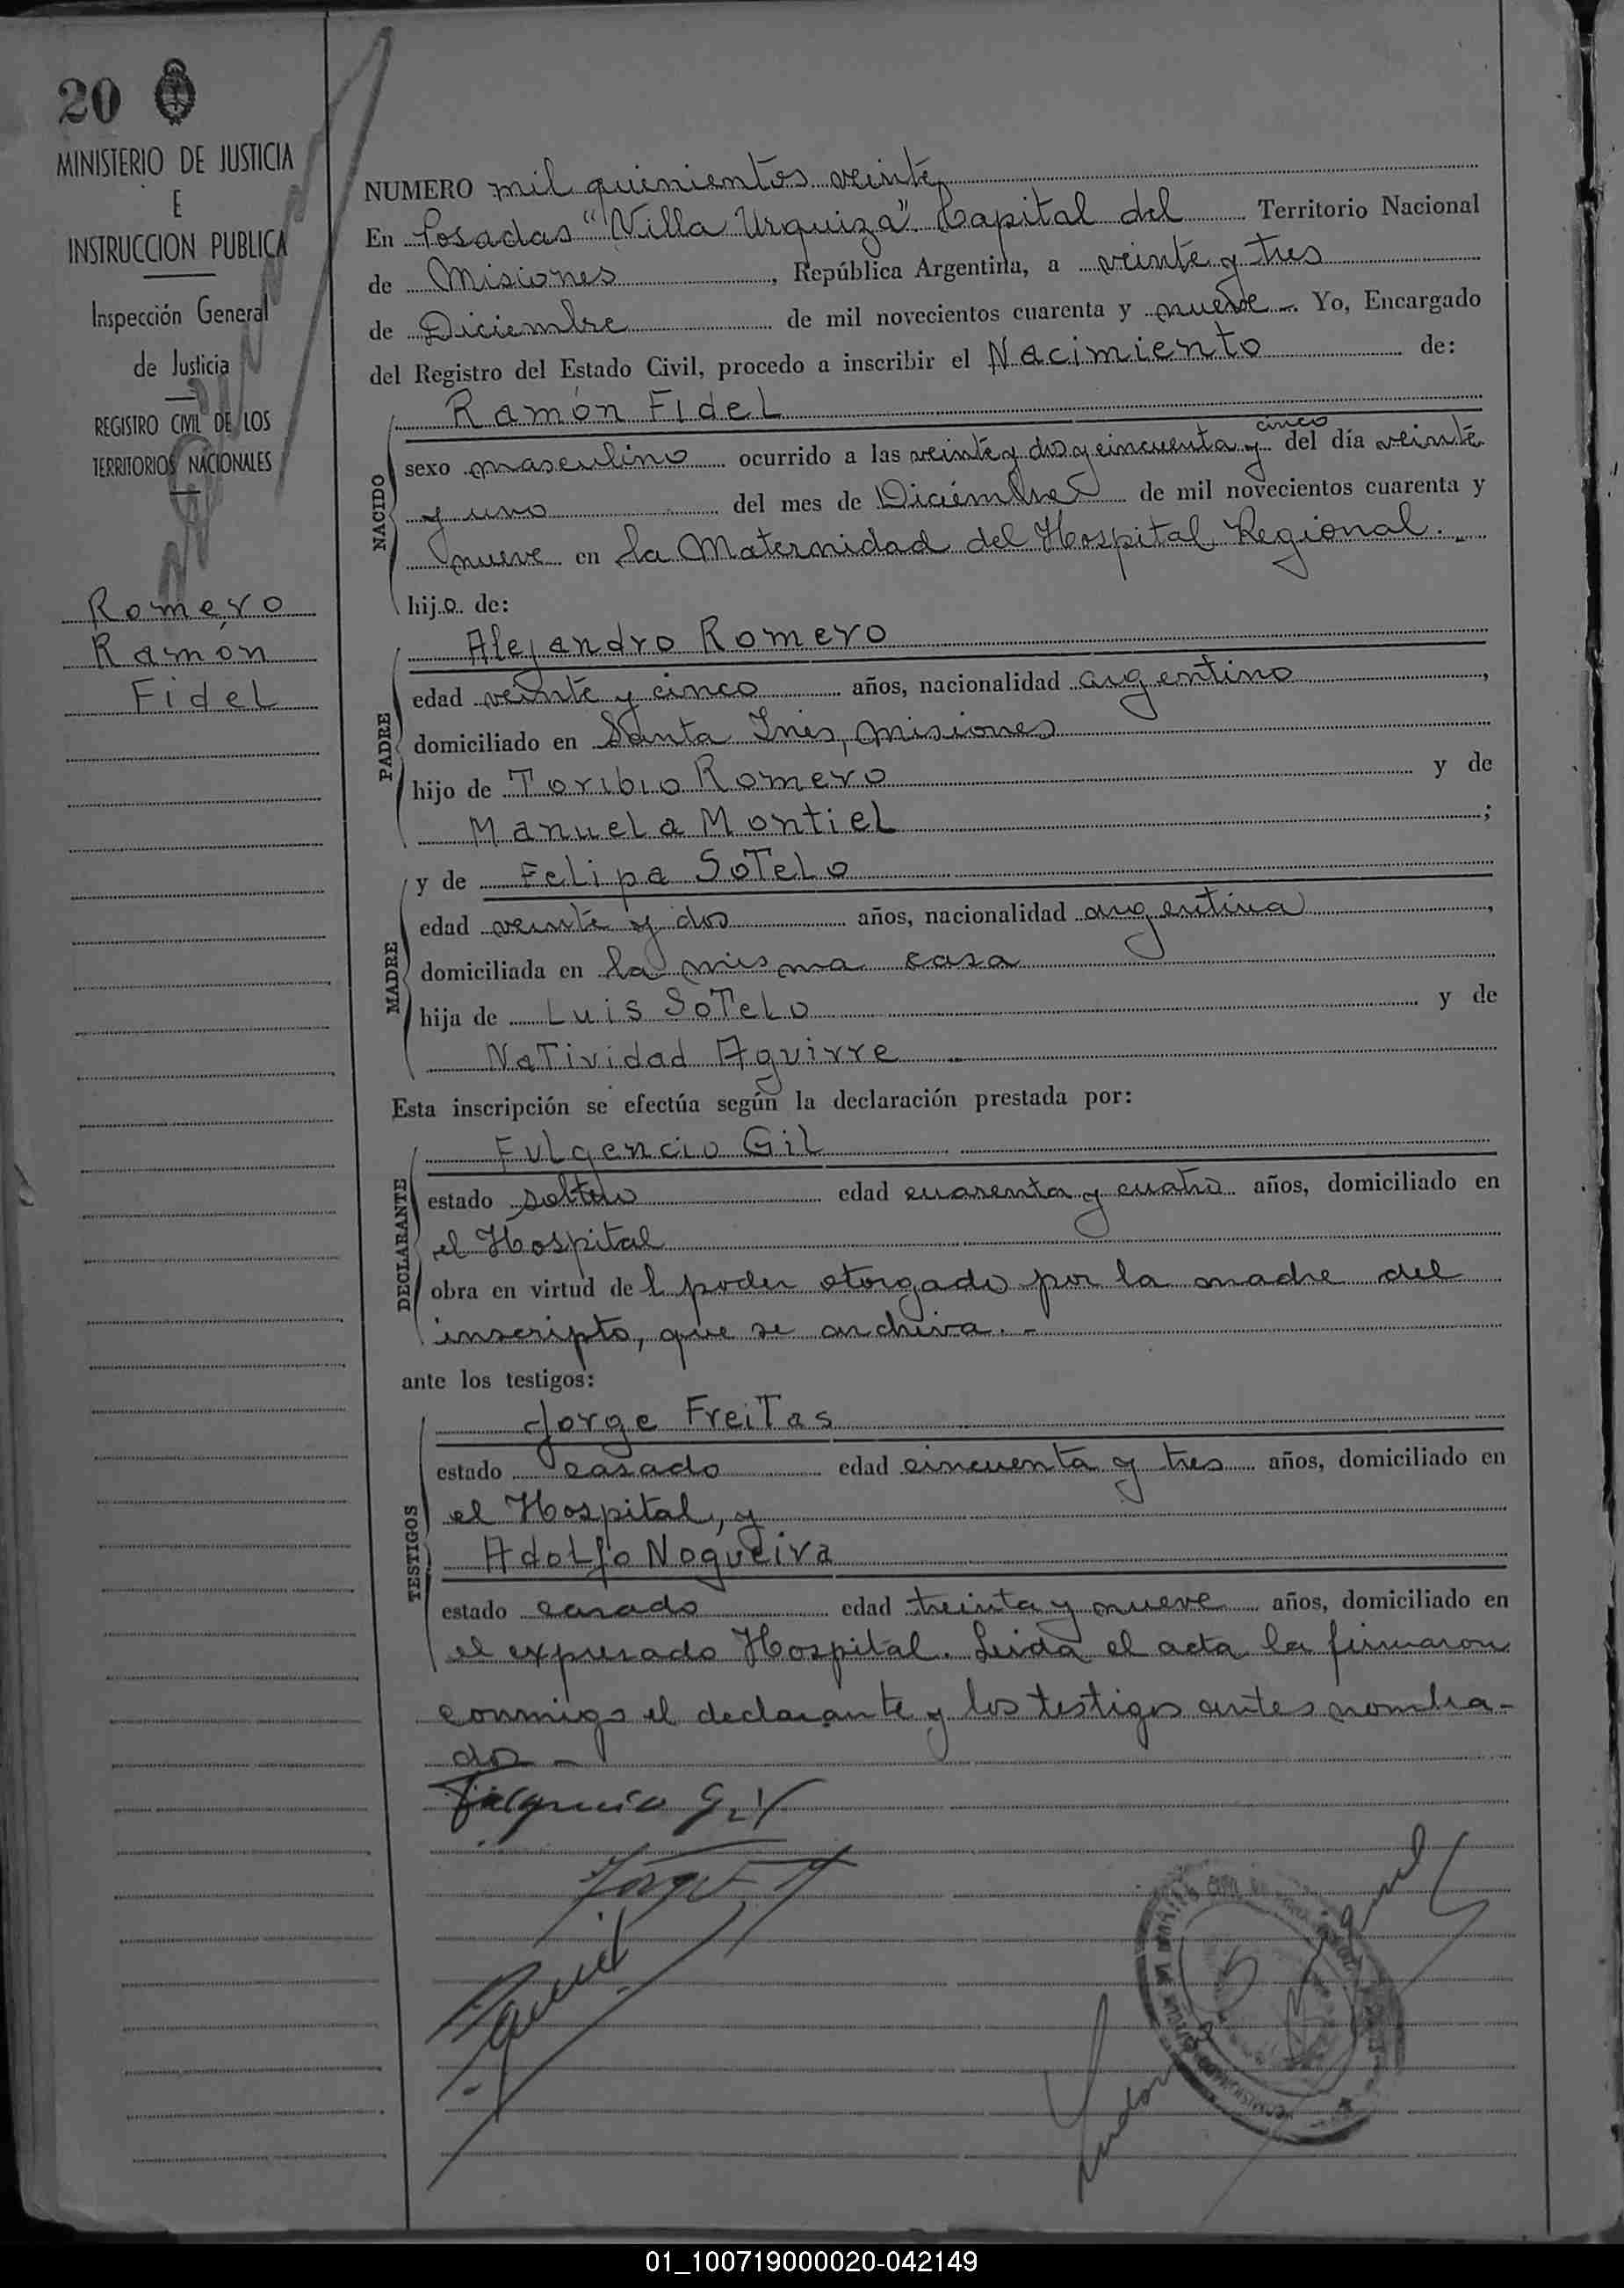 20
MINISTERIO DE JUSTICIA
E
INSTRUCCION PUBLICA
Inspección General
de Justicia
REGISTRO CIVIL DE LOS
TERRITORIOS NACIONALES
Romero
Ramón
Fidel
NUMERO mil quinientos veinte
En Posadas "Villa Urquiza" Capital del Territorio Nacional
de Misiones, República Argentina, a veinte y tres
de Diciembre de mil novecientos cuarenta y nueve -. Yo, Encargado
del Registro del Estado Civil, procedo a inscribir el Nacimiento de:
NACIDO
Ramón Fidel
sexo masculino ocurrido a las veinte y dos y cincuenta y cinco del día veinte
y uno del mes de Diciembre de mil novecientos cuarenta y
nueve en la Maternidad del Hospital Regional.
hijo de:
PADRE
Alejandro Romero
edad veinte y cinco años, nacionalidad argentino,
domiciliado en Santa Inés, Misiones
hijo de Toribio Romero y de
Manuela Montiel;
MADRE
y de Felipa Sotelo
edad veinte y dos años, nacionalidad argentina,
domiciliada en la misma casa
hija de Luis Sotelo y de
Natividad Aguirre
Esta inscripción se efectúa según la declaración prestada por:
DECLARANTE
Fulgencio Gil
estado soltero edad cuarenta y cuatro años, domiciliado en
el Hospital
obra en virtud del poder otorgado por la madre del
inscripto, que se archiva. -
ante los testigos:
TESTIGOS
Jorge Freitas
estado casado edad cincuenta y tres años, domiciliado en
el Hospital, y
Adolfo Nogueira
estado casado edad treinta y nueve años, domiciliado en
el expresado Hospital. Leida el acta la firmaron
conmigo el declarante y los testigos antes nombra-
dos -
Fulgencio Gil
01_100719000020-042149